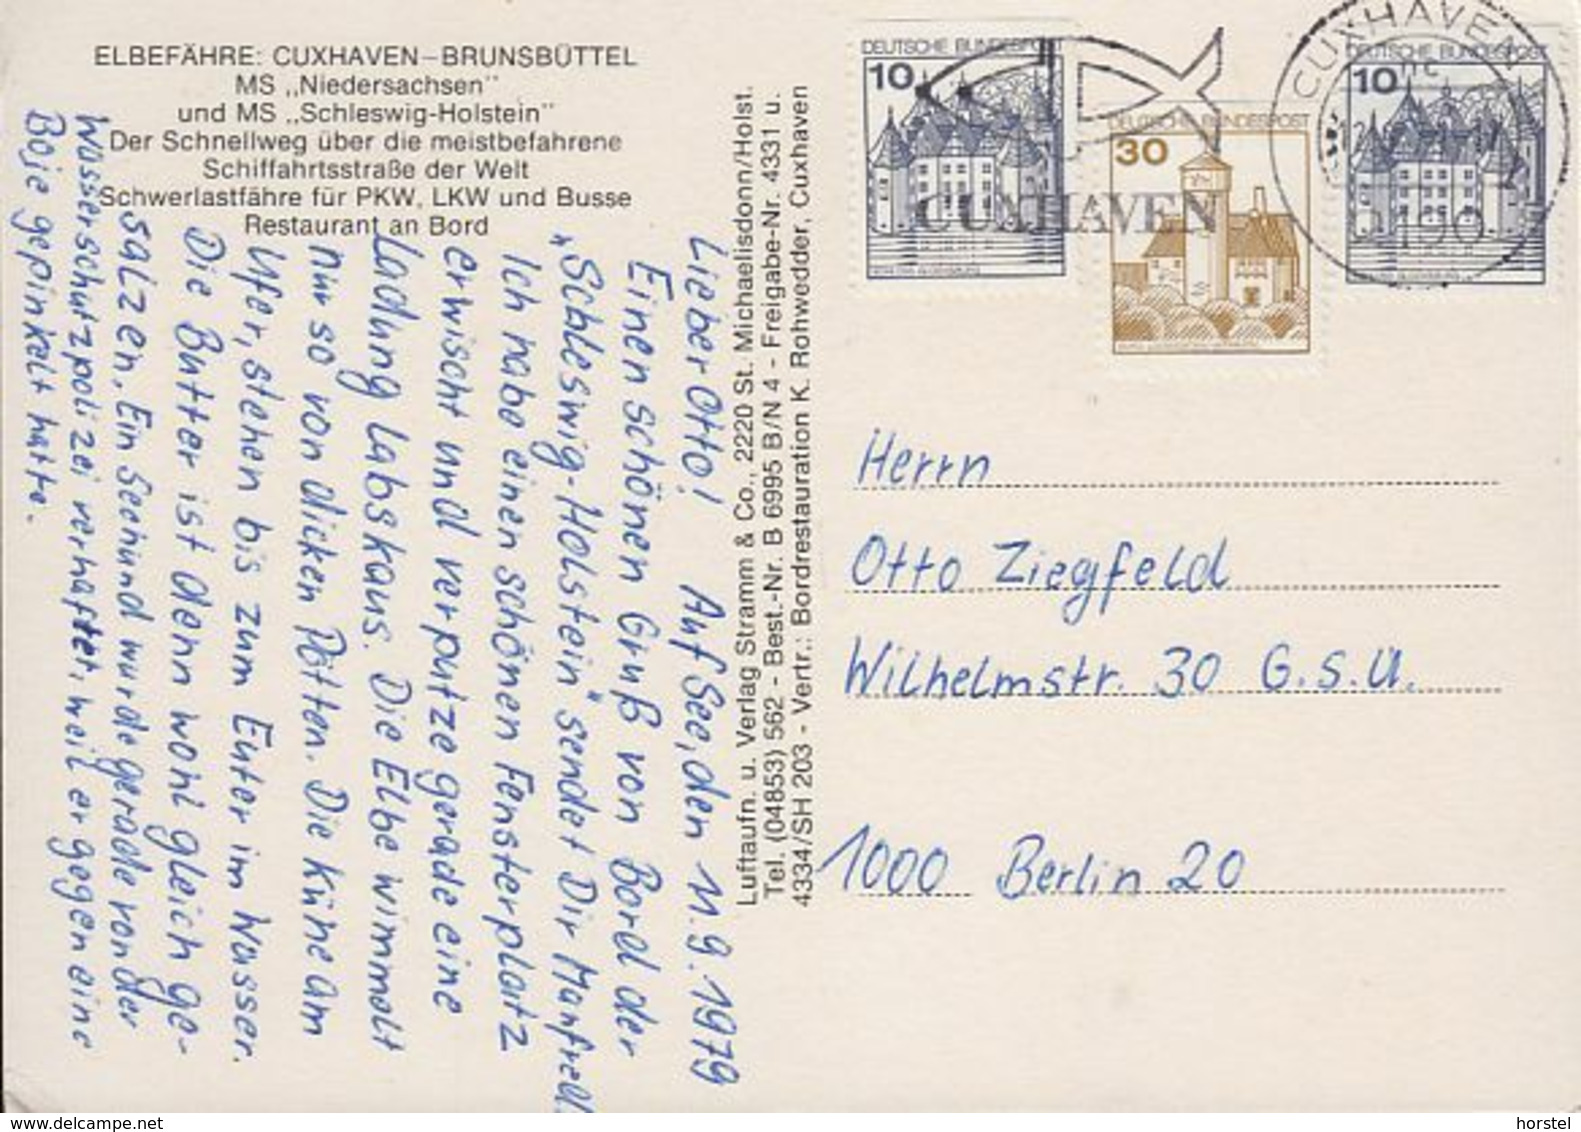 ELBEFÄHRE: CUXHAVEN–BRUNSBÜTTEL
MS „Niedersachsen"
und MS „Schleswig-Holstein"
Der Schnellweg über die meistbefahrene
Schiffahrtsstraße der Welt
Schwerlastfähre für PKW, LKW und Busse
Restaurant an Bord
Lieber Otto! Auf See, den 11.9.1979
Einen schönen Gruß von Bord der
„Schleswig-Holstein" sendet Dir Manfred.
Ich habe einen schönen Fensterplatz
erwischt und verputze gerade eine
Ladung Labskaus. Die Elbe wimmelt
nur so von dicken Pötten. Die Kühe am
Ufer, stehen bis zum Euter im Wasser.
Die Butter ist denn wohl gleich ge-
salzen. Ein Seehund wurde gerade von der
Wasserschutzpolizei verhaftet, weil er gegen eine
Boje gepinkelt hatte.
Luftaufn. u. Verlag Stramm & Co., 2220 St. Michaelisdonn/Holst.
Tel. (04853) 562 - Best.-Nr. B 6995 B/N 4 - Freigabe-Nr. 4331 u.
4334/SH 203 - Vertr.: Bordrestauration K. Rohwedder, Cuxhaven
DEUTSCHE BUNDESPOST
10
DEUTSCHE BUNDESPOST
30
DEUTSCHE BUNDESPOST
10
CUXHAVEN
CUXHAVEN
190
Herrn
Otto Ziegfeld
Wilhelmstr. 30 G.S.U.
1000 Berlin 20
delcampe.net
horstel